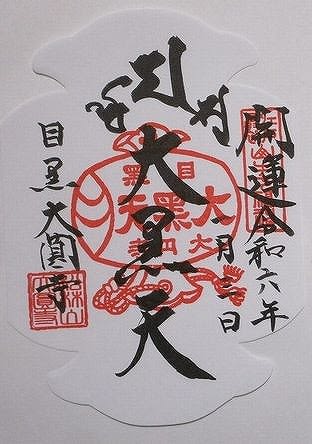 開運
令和六年
一月三日
大黒天
目黒
大黒天
大円寺
目黒大圓寺